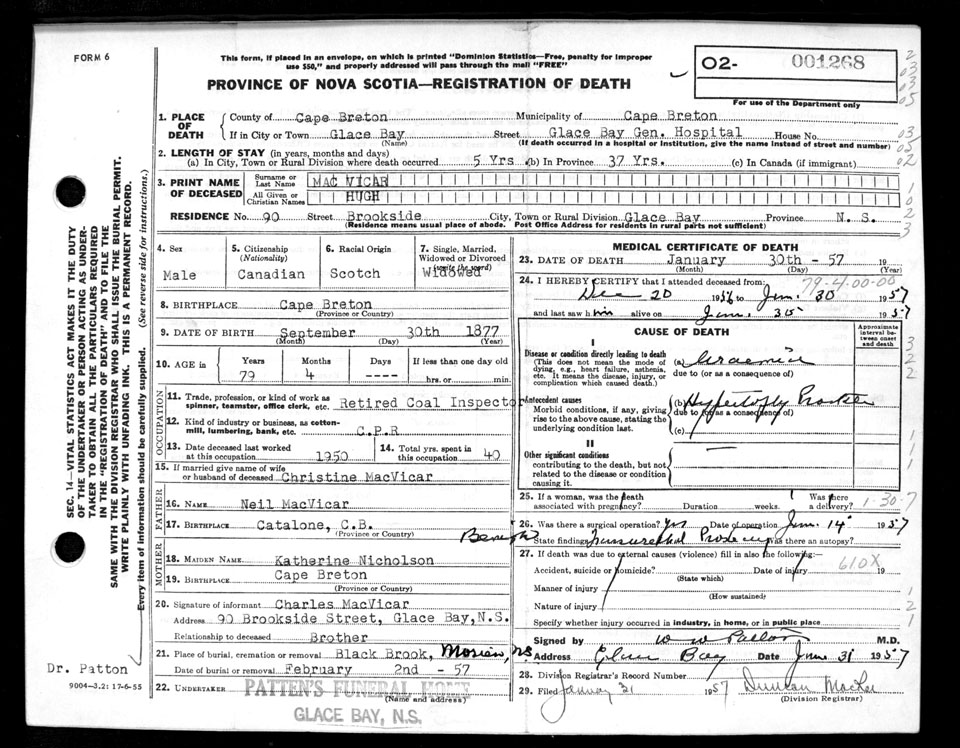 FORM 6
This form, if placed in an envelope, on which is printed "Dominion Statistics—Free, penalty for improper
use $50," and properly addressed will pass through the mail "FREE"
PROVINCE OF NOVA SCOTIA—REGISTRATION OF DEATH
02- 001268
For use of the Department only
1. PLACE OF DEATH
County of Cape Breton Municipality of Cape Breton
If in City or Town Glace Bay Street Glace Bay Gen. Hospital House No.
(Name) (If death occurred in a hospital or institution, give the name instead of street and number)
2. LENGTH OF STAY (in years, months and days)
(a) In City, Town or Rural Division where death occurred 5 Yrs (b) In Province 37 Yrs. (c) In Canada (if immigrant)
3. PRINT NAME OF DECEASED
Surname or Last Name MAC VICAR
All Given or Christian Names HUGH
RESIDENCE No. 90 Street Brookside City, Town or Rural Division Glace Bay Province N. S.
(Residence means usual place of abode. Post Office Address for residents in rural parts not sufficient)
4. Sex
Male
5. Citizenship
(Nationality)
Canadian
6. Racial Origin
Scotch
7. Single, Married,
Widowed or Divorced
(write the word)
Widowed
8. BIRTHPLACE Cape Breton
(Province or Country)
9. DATE OF BIRTH September 30th 1877
(Month) (Day) (Year)
10. AGE in
Years Months Days If less than one day old
79 4 ---- hrs. or min.
OCCUPATION
11. Trade, profession, or kind of work as
spinner, teamster, office clerk, etc. Retired Coal Inspector
12. Kind of industry or business, as cotton-
mill, lumbering, bank, etc. C.P.R
13. Date deceased last worked
at this occupation 1950
14. Total yrs. spent in
this occupation 40
15. If married give name of wife
or husband of deceased Christine MacVicar
FATHER
16. NAME Neil MacVicar
17. BIRTHPLACE Catalone, C.B.
(Province or Country)
MOTHER
18. MAIDEN NAME Katherine Nicholson
19. BIRTHPLACE Cape Breton
(Province or Country)
20. Signature of informant Charles MacVicar
Address 90 Brookside Street, Glace Bay, N.S.
Relationship to deceased Brother
21. Place of burial, cremation or removal Black Brook, Morien, NS
Date of burial or removal February 2nd - 57
22. UNDERTAKER PATTEN'S FUNERAL HOME
(Name and address)
GLACE BAY, N.S.
MEDICAL CERTIFICATE OF DEATH
23. DATE OF DEATH January 30th - 57 19
(Month) (Day) (Year)
79-4-00-00
24. I HEREBY CERTIFY that I attended deceased from:
Dec 20 1956 to Jan. 30 1957
and last saw him alive on Jan. 30 1957
CAUSE OF DEATH
Approximate interval between onset and death
I
Disease or condition directly leading to death
(This does not mean the mode of
dying, e.g., heart failure, asthenia,
etc. It means the disease, injury, or
complication which caused death.)
(a) Uraemia
due to (or as a consequence of)
Antecedent causes
Morbid conditions, if any, giving
rise to the above cause, stating the
underlying condition last.
(b) Hypertrophy Prostate
due to (or as a consequence of)
(c)
II
Other significant conditions
contributing to the death, but not
related to the disease or condition
causing it.
25. If a woman, was the death
associated with pregnancy? Duration weeks. Was there
a delivery?
1-30-7
26. Was there a surgical operation? Yes Date of operation Jan. 14 1957
State findings Was there an autopsy?
Benign
27. If death was due to external causes (violence) fill in also the following:—
Accident, suicide or homicide? Date of injury 19
(State which)
610X
Manner of injury
(How sustained)
Nature of injury
Specify whether injury occurred in industry, in home, or in public place
Signed by W W Patton M.D.
Address Glace Bay Date Jan 31 1957
28. Division Registrar's Record Number
29. Filed January 31 1957 Duncan
(Division Registrar)
SEC. 14—VITAL STATISTICS ACT MAKES IT THE DUTY
OF THE UNDERTAKER OR PERSON ACTING AS UNDER-
TAKER TO OBTAIN ALL THE PARTICULARS REQUIRED
IN THE "REGISTRATION OF DEATH" AND TO FILE THE
SAME WITH THE DIVISION REGISTRAR WHO SHALL ISSUE THE BURIAL PERMIT.
WRITE PLAINLY WITH UNFADING INK. THIS IS A PERMANENT RECORD.
Every item of information should be carefully supplied. (See reverse side for instructions.)
Dr. Patton
9004—3.2: 17-6-55